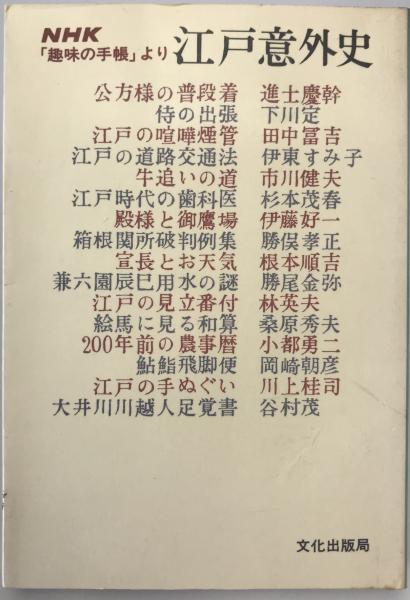 NHK
「趣味の手帳」より 江戸意外史
公方様の普段着 進士慶幹
侍の出張 下川定
江戸の喧嘩煙管 田中冨吉
江戸の道路交通法 伊東すみ子
牛追いの道 市川健夫
江戸時代の歯科医 杉本茂春
殿様と御鷹場 伊藤好一
箱根関所破判例集 勝俣孝正
宣長とお天気 根本順吉
兼六園辰巳用水の謎 勝尾金弥
江戸の見立番付 林英夫
絵馬に見る和算 桑原秀夫
200年前の農事暦 小都勇二
鮎鮨飛脚便 岡崎朝彦
江戸の手ぬぐい 川上桂司
大井川川越人足覚書 谷村茂
文化出版局